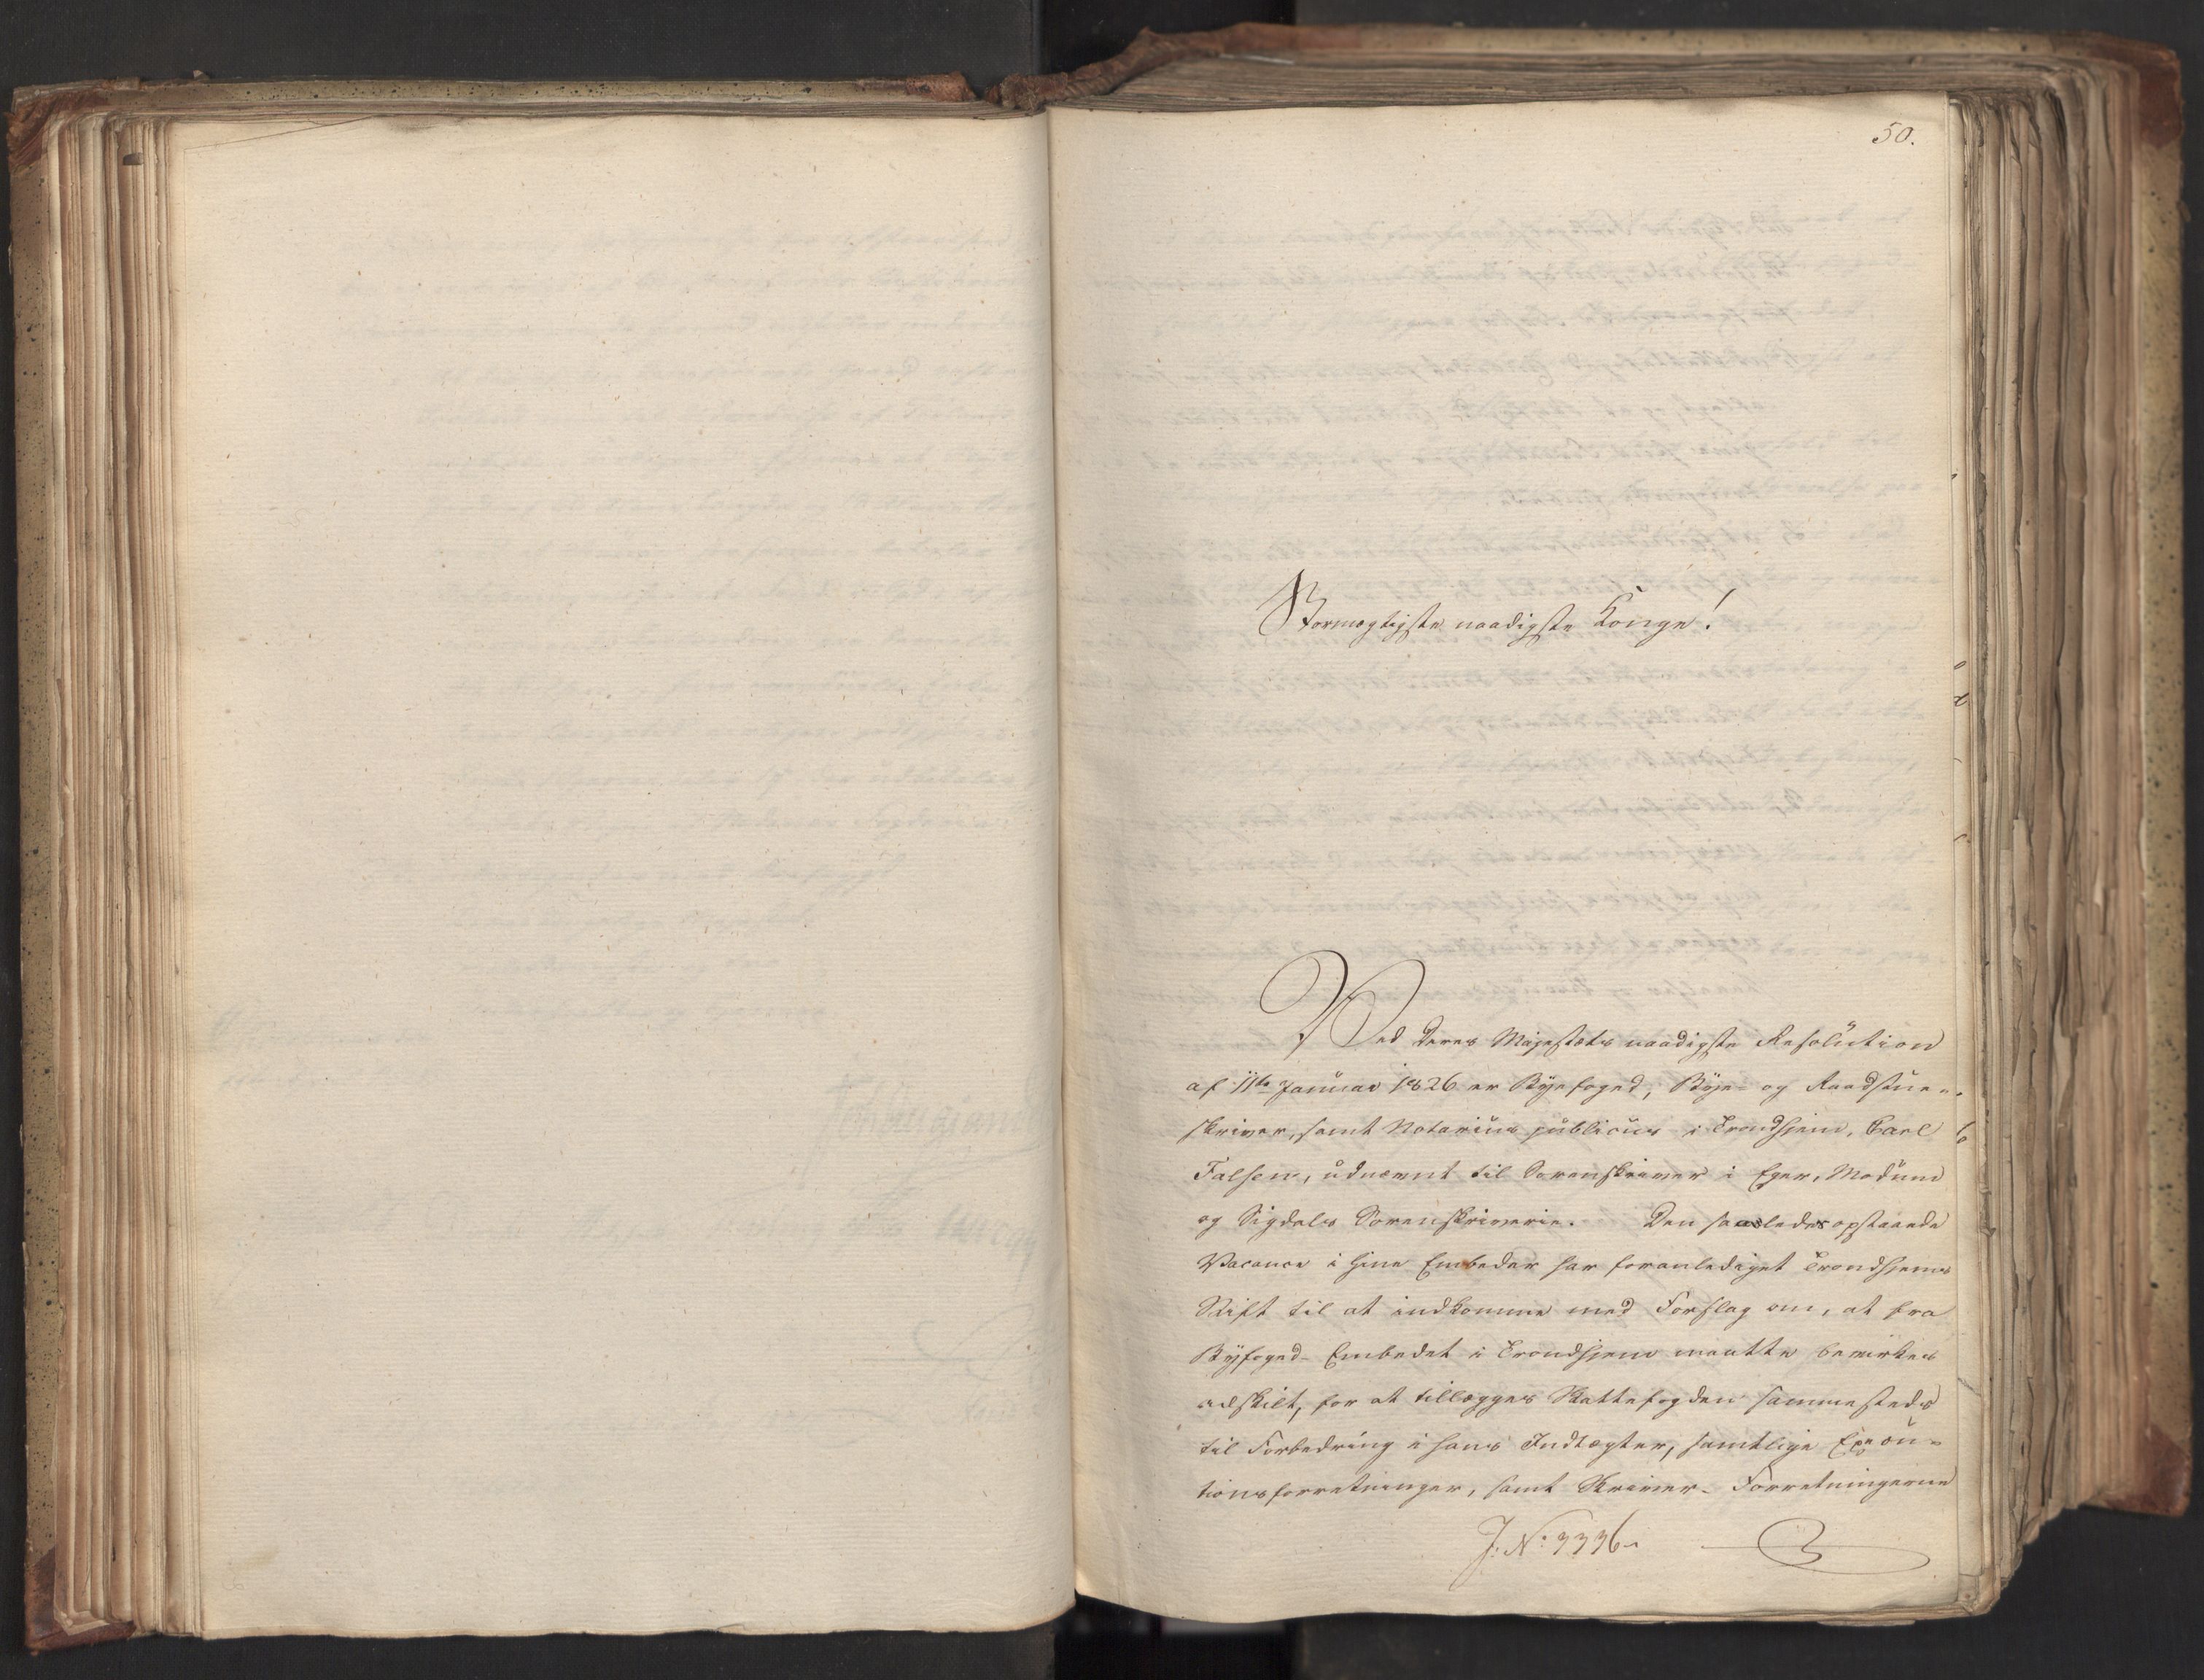 50.
Stormægtigste naadigste Konge!
Ved Deres Majestæts naadigste Resolution
af 11te Januar 1826 er Byefoged, Bye- og Raadstue-
skriver, samt Notarius publicus i Trondhjem, Carl
Falsen, udnævnt til Sorenskriver i Eger, Modum
og Sigdals Sorenskriverie. Den saaledes opstaaede
Vacance i hine Embeder har foranlediget Trondhjems
Stift til at indkomme med Forslag om, at fra
Byfoged-Embedet i Trondhjem maatte bevirkes
adskilt, for at tillægges Stattefogden sammesteds
til Forbedring i hans Indtægter, samtlige Execu-
tionsforretninger, samt Skriver-Forretningerne
J: No: 3336